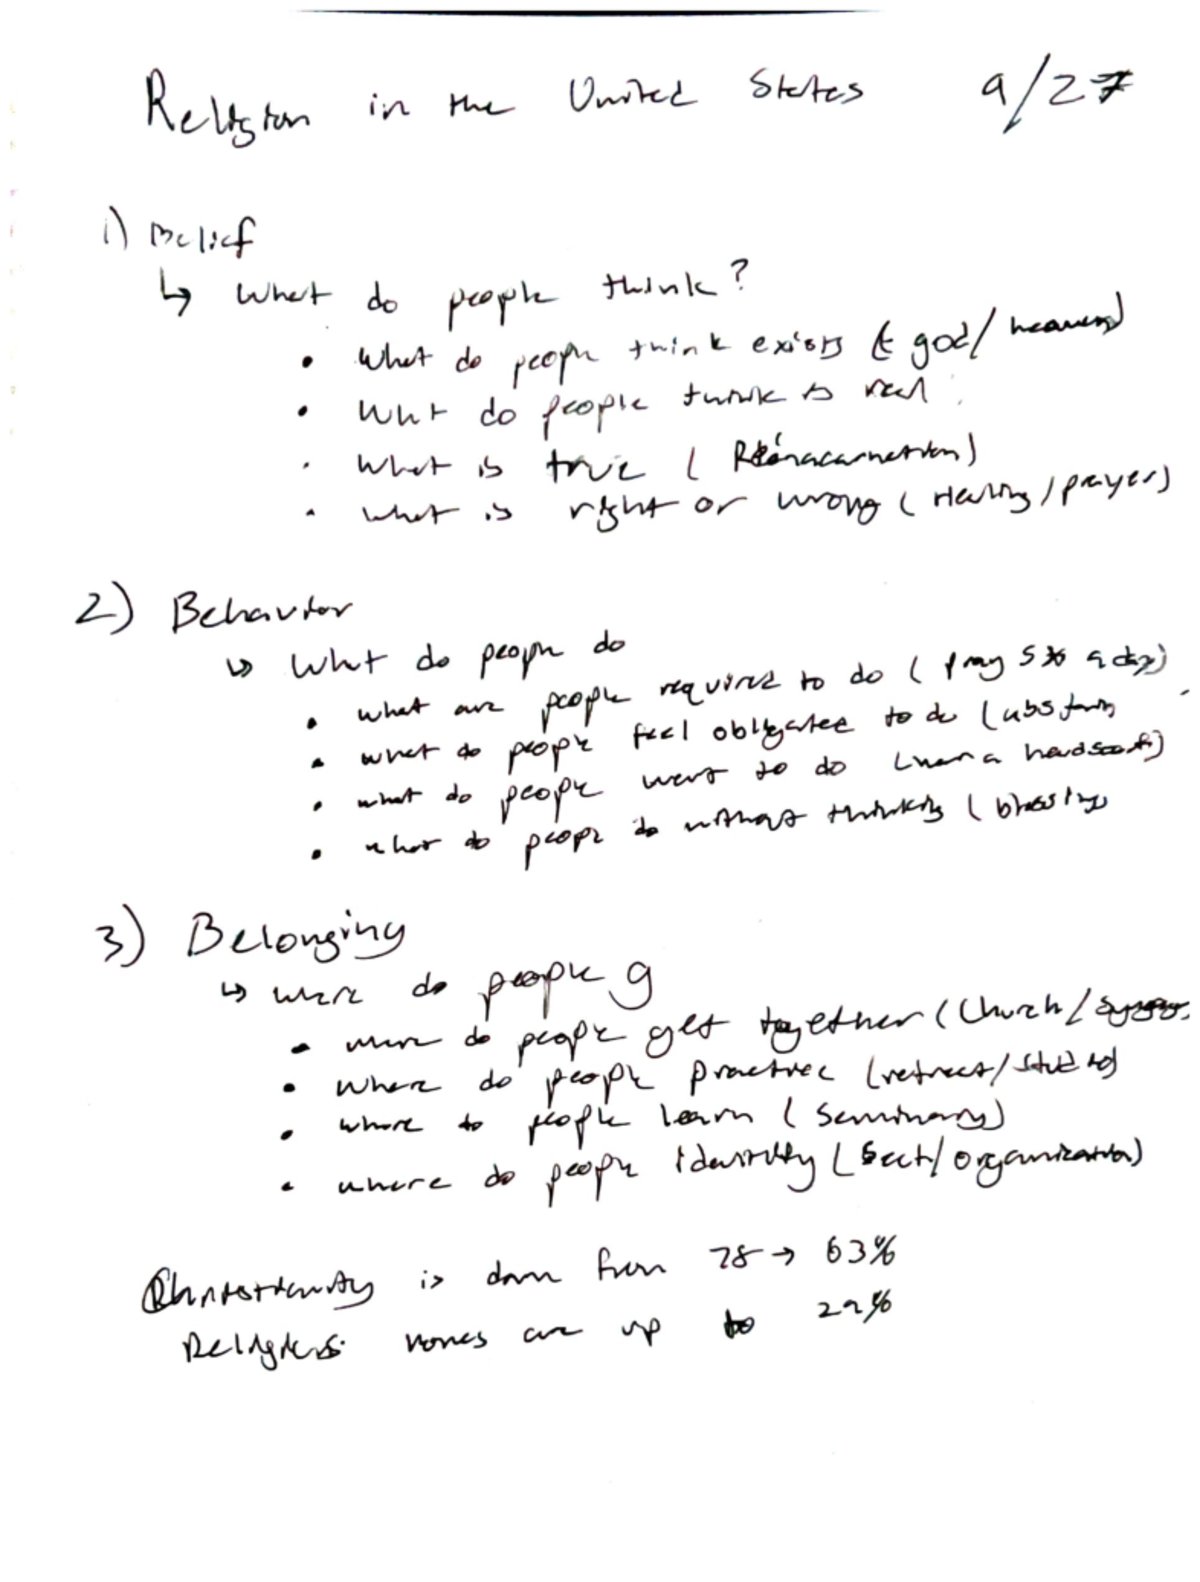 Religion in the United States 9/27
1) Belief
↳ What do people think?
• What do people think exists ( god/ heaven)
• What do people think is real
• What is true ( Reinacarnation)
• What is right or wrong ( Healing / prayer)
2) Behavior
↳ What do people do
• what are people required to do ( pray 5x a day)
• what do people feel obligated to do (abstain
• what do people want to do (wear a headscarf)
• what do people do without thinking ( blessing
3) Belonging
↳ where do people g
• where do people get together ( Church /
• where do people practice (retreat/
• where to people learn ( Seminary)
• where do people identity ( Sect/ organization)
Christianity is down from 78 → 63%
Religious nones are up to 29%